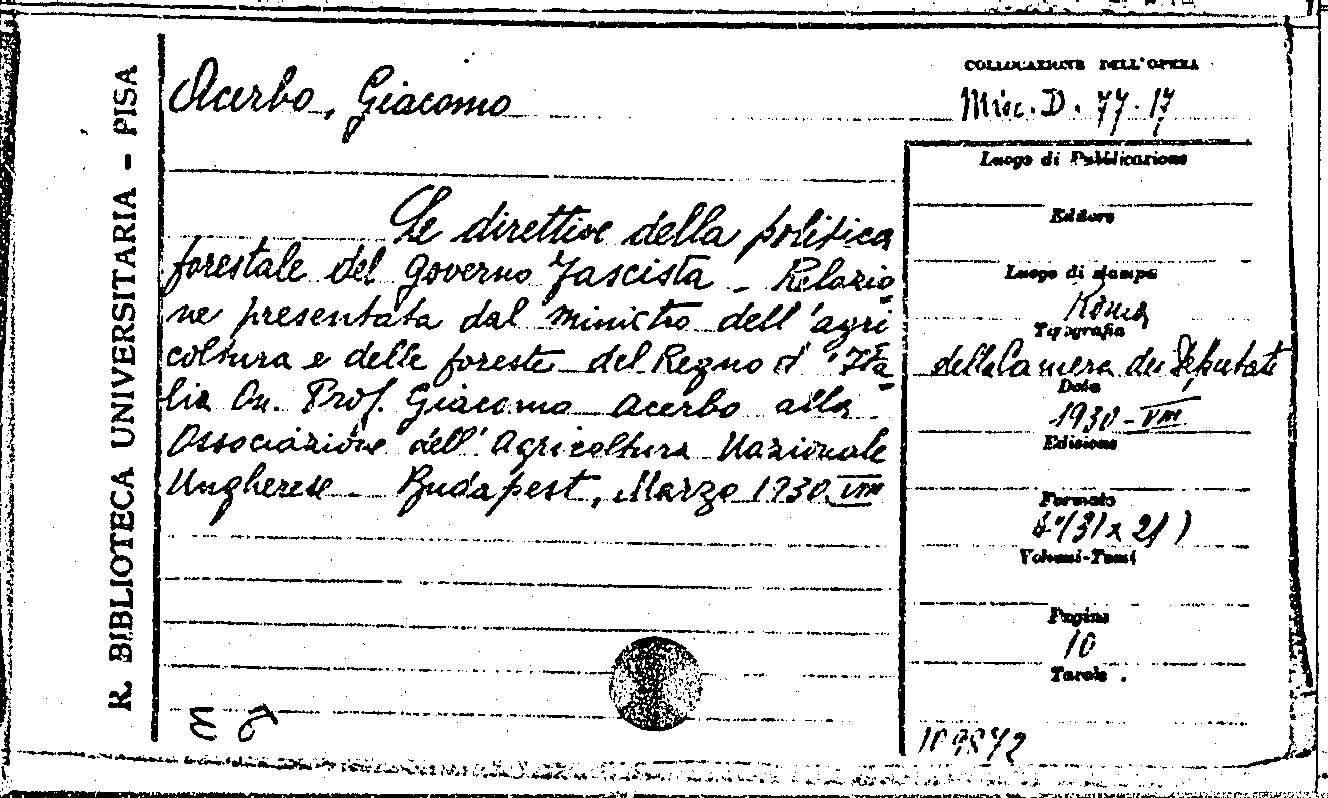 R. BIBLIOTECA UNIVERSITARIA - PISA
Acerbo, Giacomo
COLLOCAZIONE DELL'OPERA
Misc. D. 77.17
Le direttive della politica
forestale del Governo Fascista - Relazio-
ne presentata dal ministro dell'agri-
coltura e delle foreste del Regno d'Ita-
lia On. Prof. Giacomo Acerbo alla
Associazione dell'Agricoltura Nazionale
Ungherese. Budapest, Marzo 1930 VIII
Luogo di Pubblicazione
Editore
Luogo di stampa
Roma
Tipografia
della Camera dei Deputati
Data
1930-VIII
Edizione
Formato
4°(31x21)
Volumi-Tomi
Pagine
10
Tavole
109872